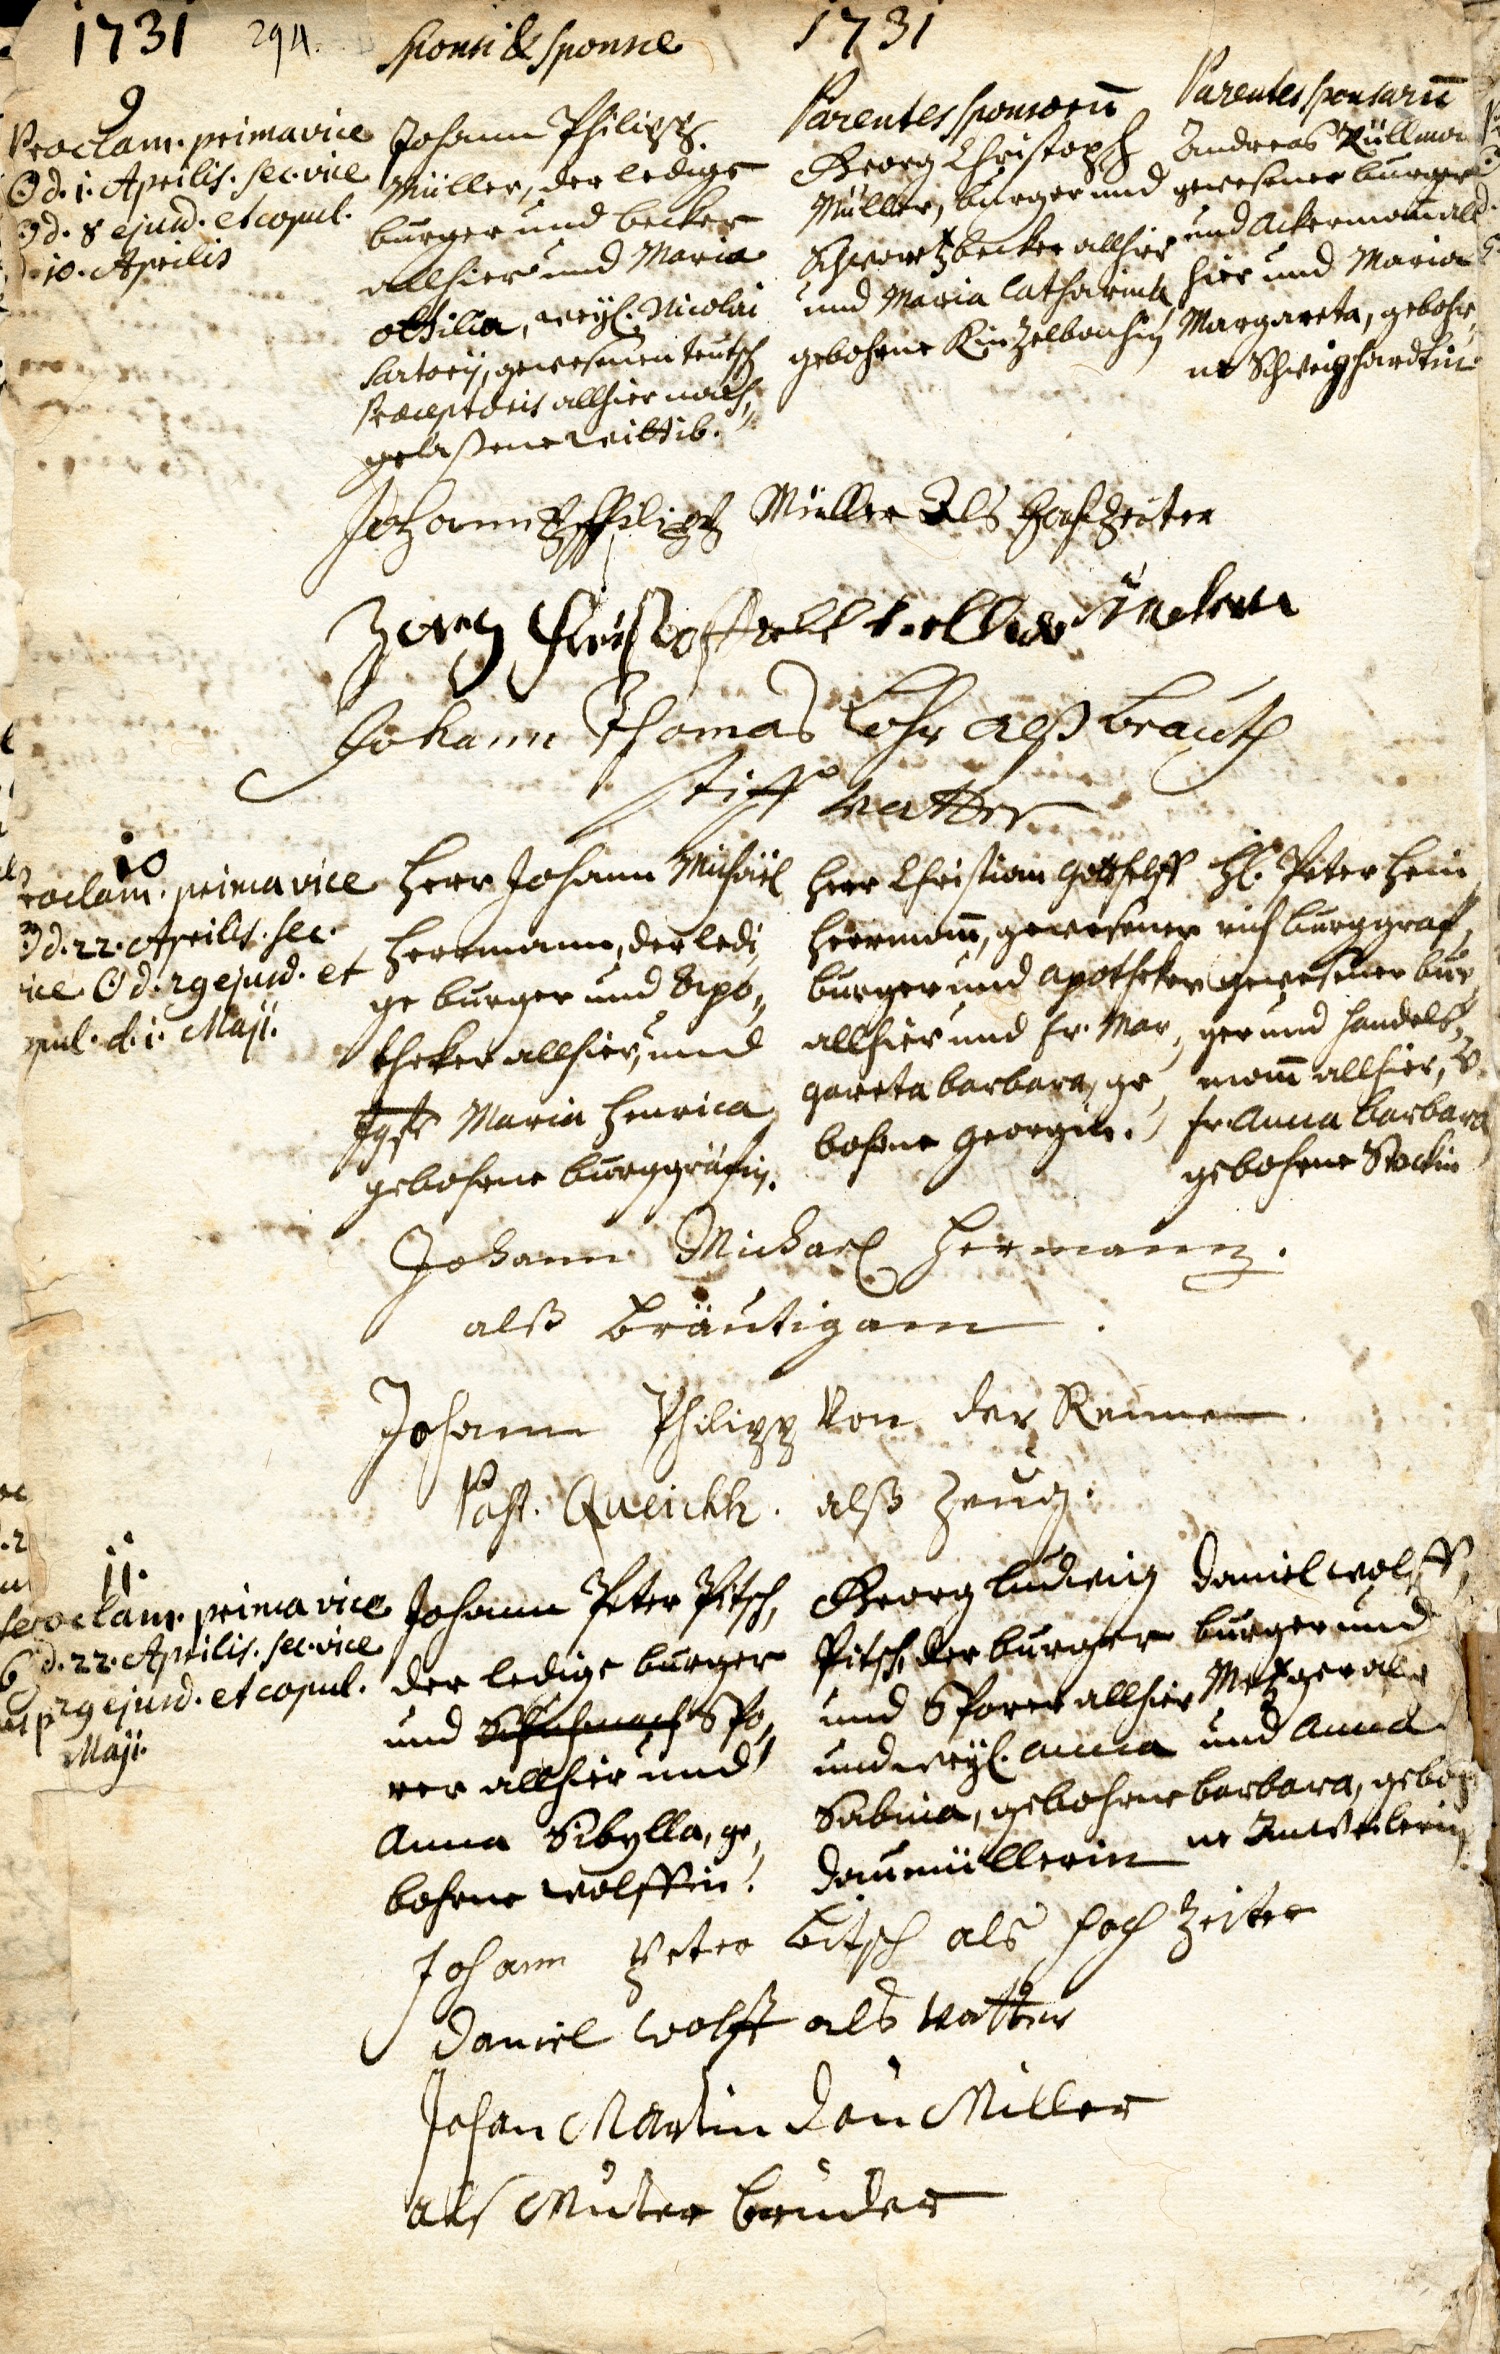 1731 294. Sponsi & Sponsae 1731
Parentes sponsorū Parentes sponsarū
9
Proclam. prima vice
☉ d. 1. Aprilis. sec. vice
☉ d. 8 ejusd. et copul.
d. 10. Aprilis
Johann Philipps
Müller, der ledige
burger und becker
allhier und Maria
Ottilia, weyl. Nicolai
Sartorij, gewesenen teutsch
Praeceptoris allhier nach-
gelaßene wittib.
Georg Christoph
Müller, burger und
Schwartzbecker allhier
und Maria Catharina,
gebohrne Kinzelbachin
Andreas Küllman
gewesener burger
und Ackermann all-
hier und Maria
Margareta, gebohr-
ne Schweighardtin.
Johann Philipp Müller Als Hochzeiter
Johann Thomas Löhr alß brauth
stiff vatter
10
roclam. prima vice
☉ d. 22. Aprilis. sec.
vice ☉ d. 29 ejusd. et
opul. d. 1. Maji.
Herr Johann Michael
Herrmann, der ledi-
ge burger und Apo-
theker allhier, und
Jgfr Maria Henrica
gebohrne burggräfin.
Herr Christian Gotthelff
Herrmann, gewesener
burger und apotheker
allhier und Fr. Mar-
gareta barbara, ge-
bohrne Georgin.
H. Peter Hein-
rich burggraf,
gewesener bur-
ger und handels-
mann allhier, v.
Fr Anna barbara
gebohrne Stockin
Johann Michael Hermann.
alß bräutigam.
Johann Philipp Von der Rennen
Past. Queichh. alß Zeug.
11.
Proclam. prima vice
d. 22. Aprilis. sec. vice
29 ejusd. et copul.
Maji.
Johann Peter Pitsch,
der ledige burger
und Schuhmach Spo-
rer allhier und
Anna Sibylla, ge-
bohrne wolffin.
Georg Ludwig
Pitsch, der burger
und Sporer allhier
und weyl. Anna
Sabina, gebohrne
Daumüllerin
Daniel wolff,
burger und
Metzger alh
und Anna
barbara, geboh
ne Anweilerin
Johann Peter bitsch als hoch zeiter
Daniel wolff als vatter
Johan Martin Dau Miller
als Muter bruder